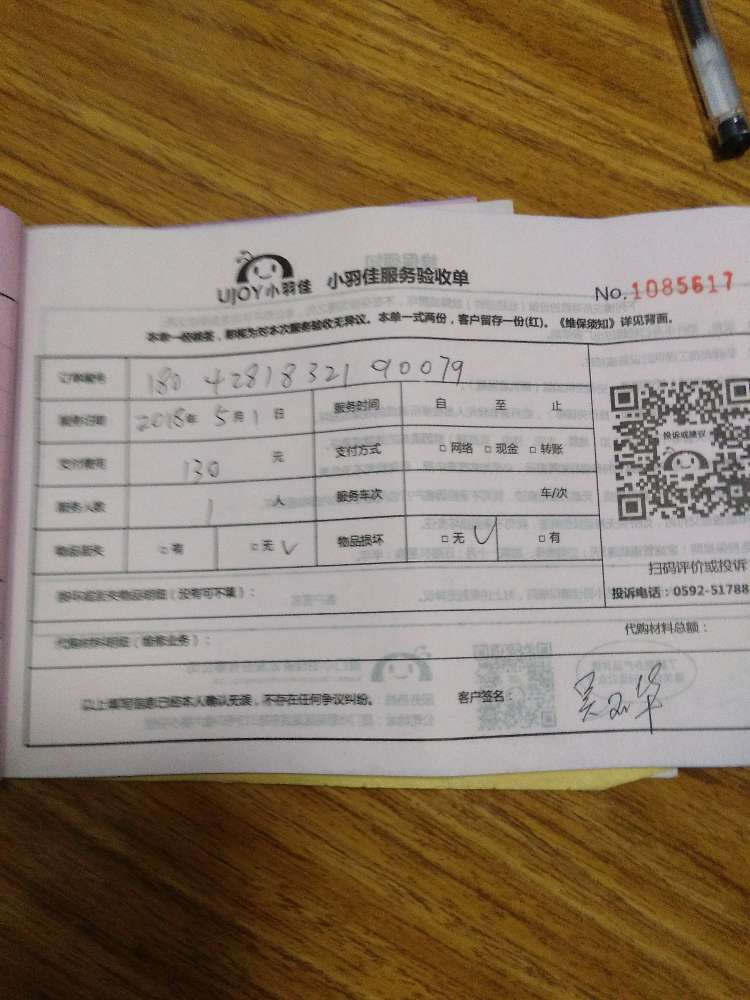 UJOY小羽佳 小羽佳服务验收单
No.1085617
本单一经填签，即视为对本次服务验收无异议。本单一式两份，客户留存一份(红)。《维保须知》详见背面。
订单编号 180 42818321 90079
服务日期 2018年 5月 1日 服务时间 自 至 止
支付费用 130 元 支付方式 □网络 □现金 □转账
服务人数 1 人 服务车次 车/次
物品丢失 □有 □无 √ 物品损坏 □无 √ □有
投诉或建议
扫码评价或投诉
投诉电话：0592-51788
损坏或丢失物品明细（没有可不填）：
代购材料明细（维修业务）： 代购材料总额：
以上填写信息已经本人确认无误，不存在任何争议纠纷。 客户签名：